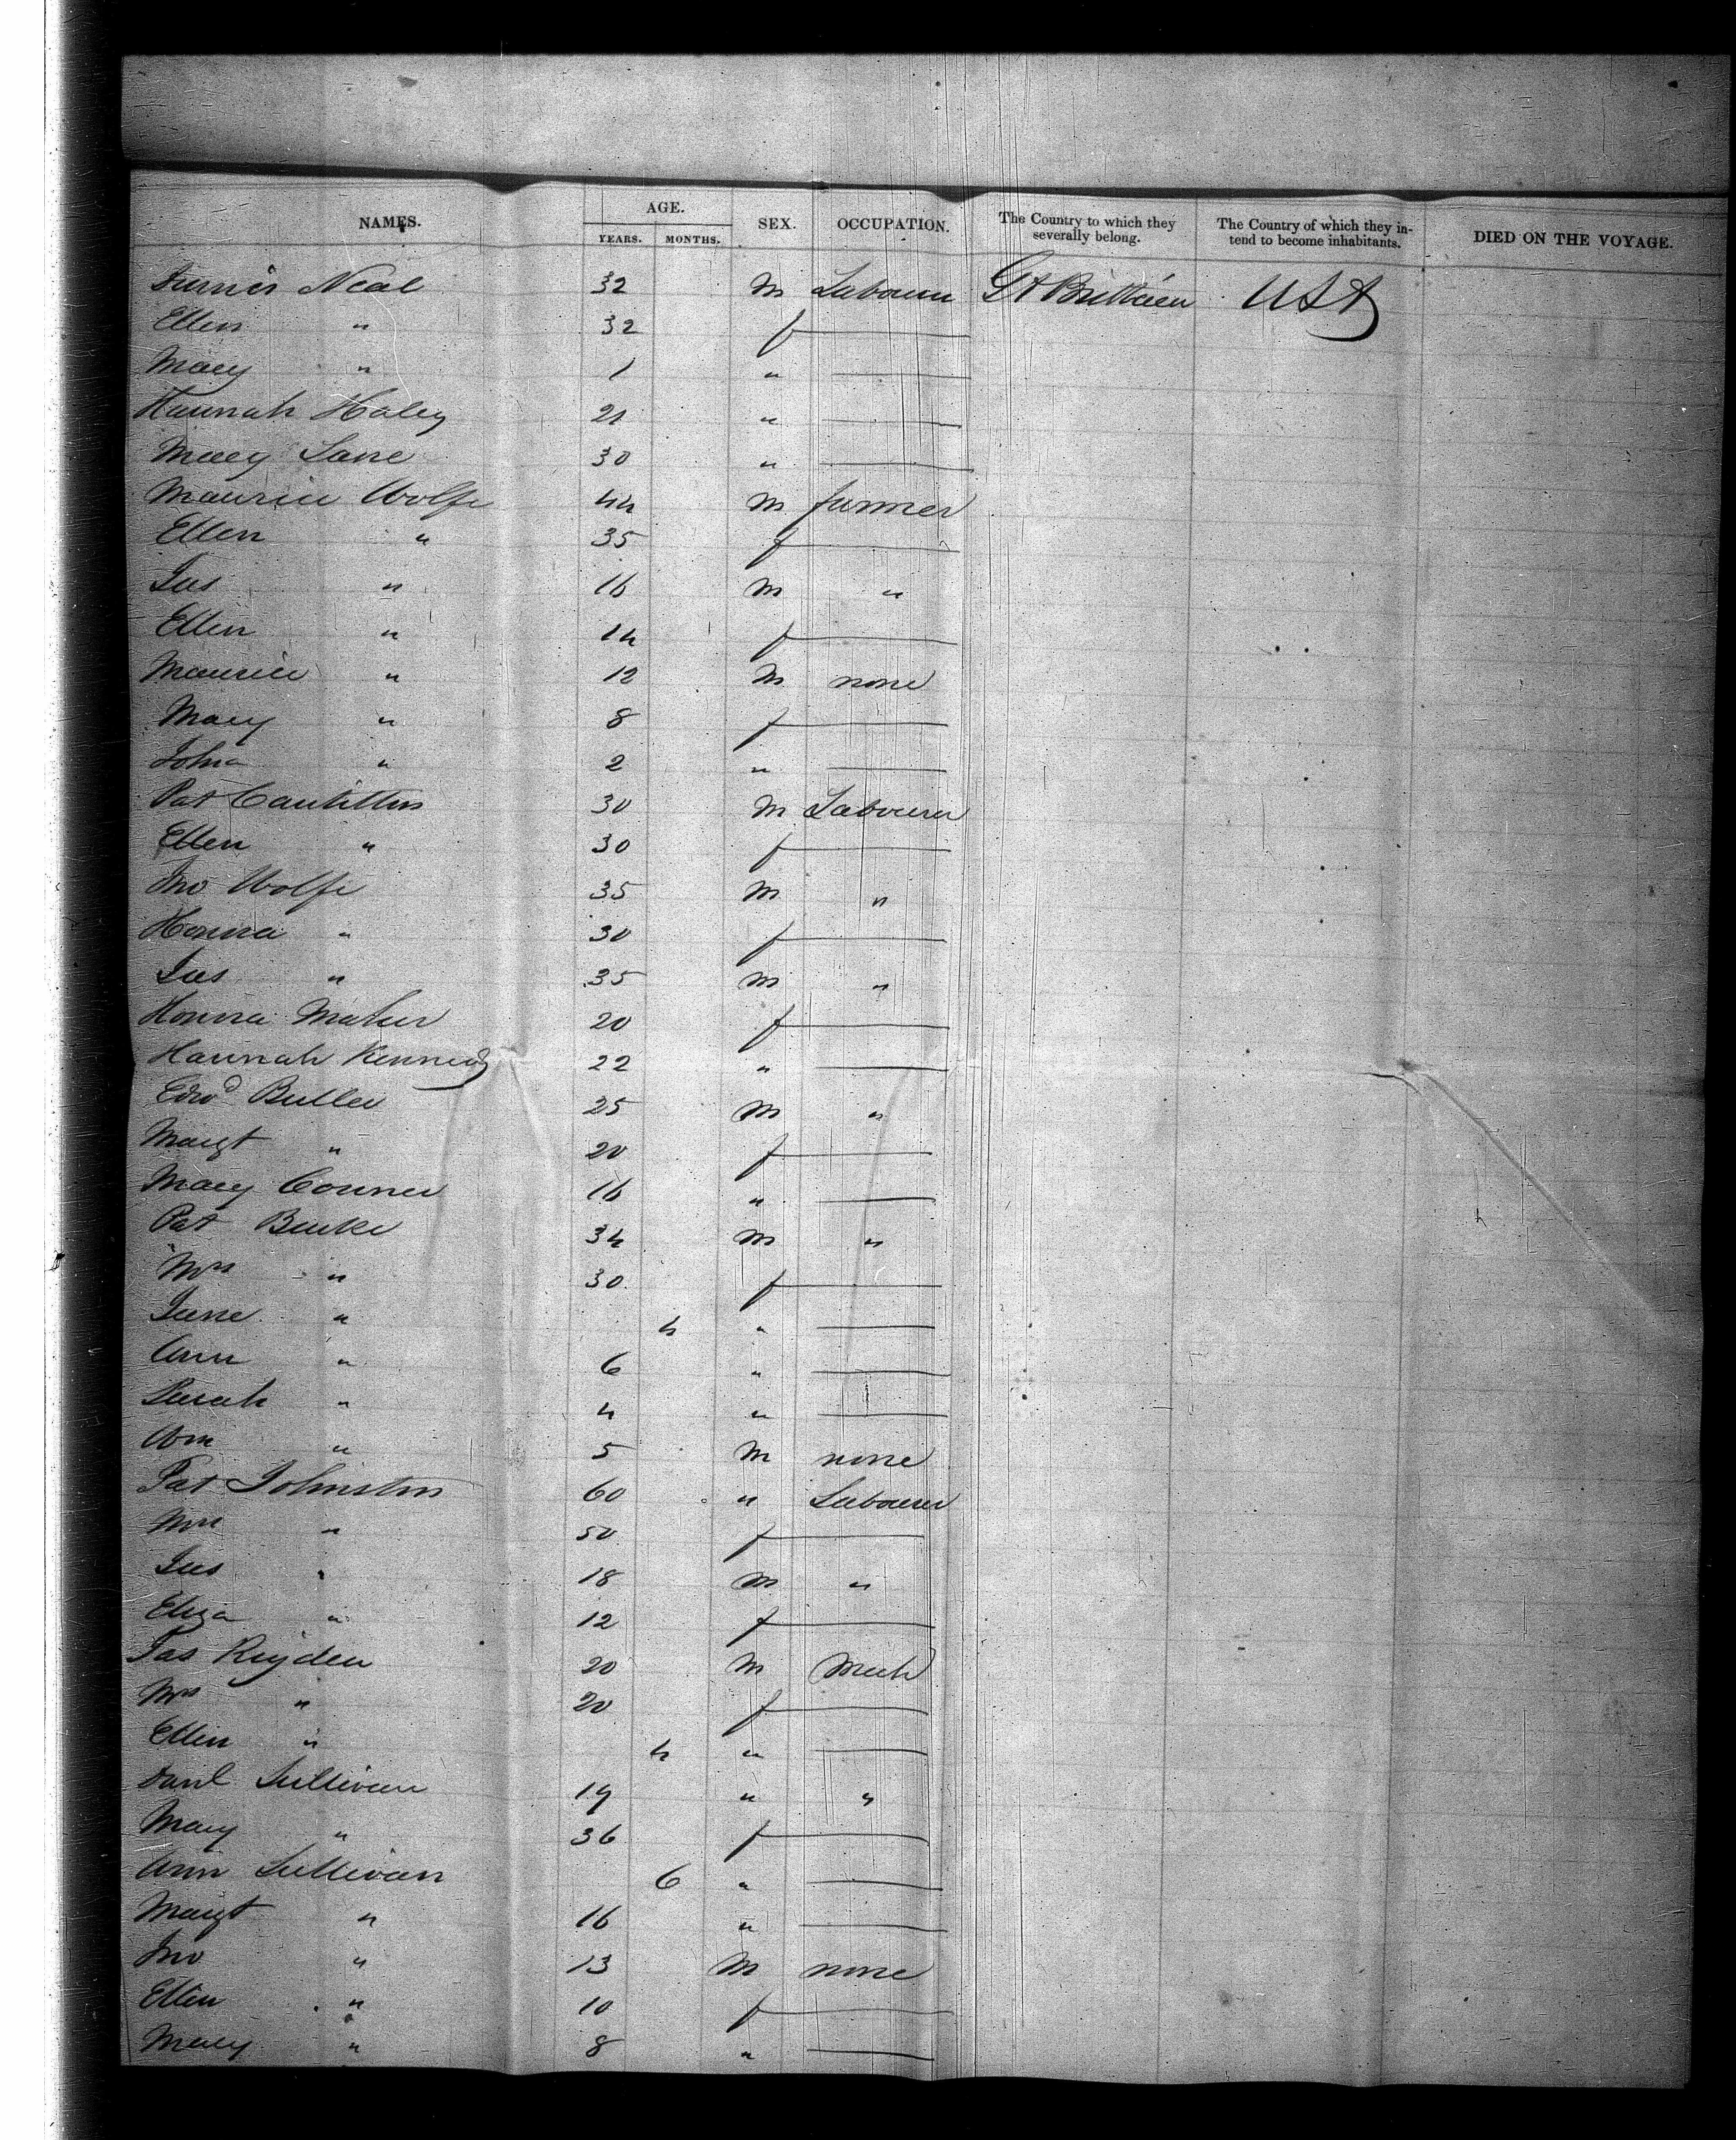 NAMES. AGE. SEX. OCCUPATION. The Country to which they severally belong. The Country of which they intend to become inhabitants. DIED ON THE VOYAGE.
YEARS. MONTHS.
Neal 32 M Labourer Gt Brittain USA
Ellen " 32 f
Mary " 1 "
Hannah Haley 21 "
Mary Lane 30 "
Maurice Wolfe 44 M farmer
Ellen " 35 f
Jas " 16 M "
Ellen " 14 f
Maurice " 12 M none
Mary " 8 f
Johna " 2 "
Pat 30 M Labourer
Ellen " 30 f
Jno Wolfe 35 M "
Honora " 30 f
Jas " 35 M "
Honora Maher 20 f
Hannah Kennedy 22 "
Edwd Butler 25 M "
Margt " 20 f
Mary Conner 16 "
Pat Burke 34 M "
Mrs " 30 f
Jane " 4 "
Ann " 6 "
Sarah " 4 "
Wm " 5 M none
Pat Johnston 60 " Labourer
Mrs " 50 f
Jas " 18 M "
Eliza " 12 f
Jas 20 M Mech
Mrs " 20 f
Ellen " 4 "
Danl Sullivan 19 " "
Mary " 36 f
Ann Sullivan 6 "
Margt " 16 "
Jno " 13 M none
Ellen " 10 f
Mary " 8 "